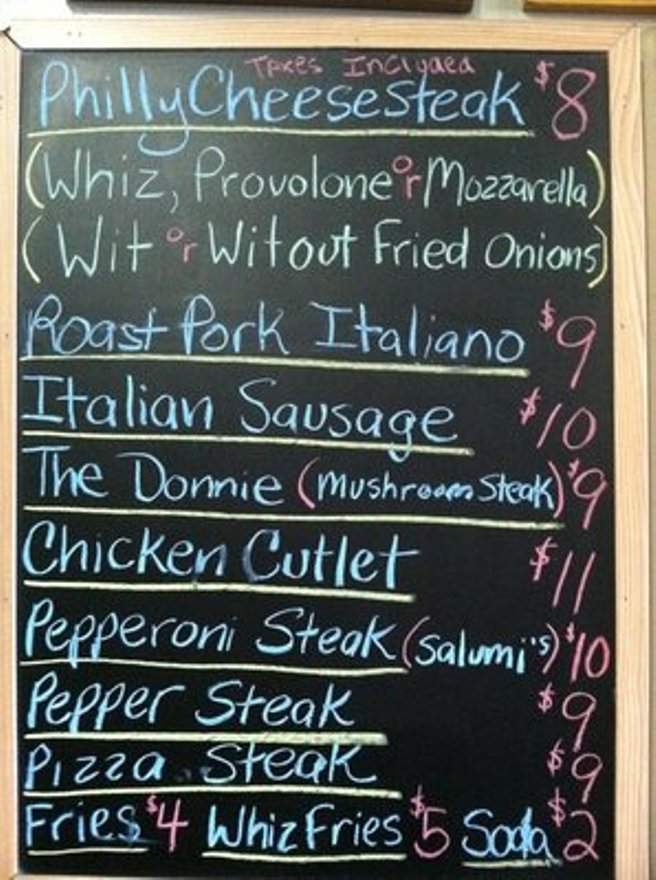 Taxes Included
Philly Cheesesteak $8
(Whiz, Provolone or Mozzarella)
(Wit or Witout Fried Onions)
Roast Pork Italiano $9
Italian Sausage $10
The Donnie (Mushroom Steak) $9
Chicken Cutlet $11
Pepperoni Steak (Salumi's) $10
Pepper Steak $9
Pizza Steak $9
Fries $4 Whiz Fries $5 Soda $2